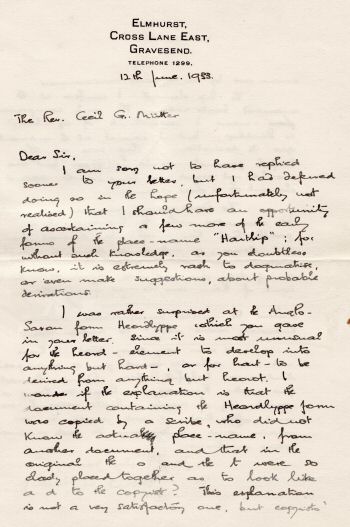 ELMHURST,
CROSS LANE EAST,
GRAVESEND.
TELEPHONE 1299.
12th June. 1953.
The Rev. Cecil G.
Dear Sir,
I am sorry not to have replied
sooner to your letter, but I had deferred
doing so in the hope (unfortunately not
realised) that I should have an opportunity
of ascertaining a few more of the early
forms of the place-name "Hartlip"; for
without such knowledge, as you doubtless
know, it is extremely rash to dogmatise,
or even make suggestions, about probable
derivations.
I was rather surprised at the Anglo-
Saxon form Heardlyppe which you gave
in your letter. Since it is most unusual
for the heard- element to develop into
anything but hard-, or for hart- to be
derived from anything but heorot. I
wonder if the explanation is that the
document containing the Heardlyppe form
was copied by a scribe, who did not
know the actual place-name, from
another document, and that in the
original the o and the t were so
closely placed together as to look like
a d to the copyist? This explanation
is not a very satisfactory one, but copyists'